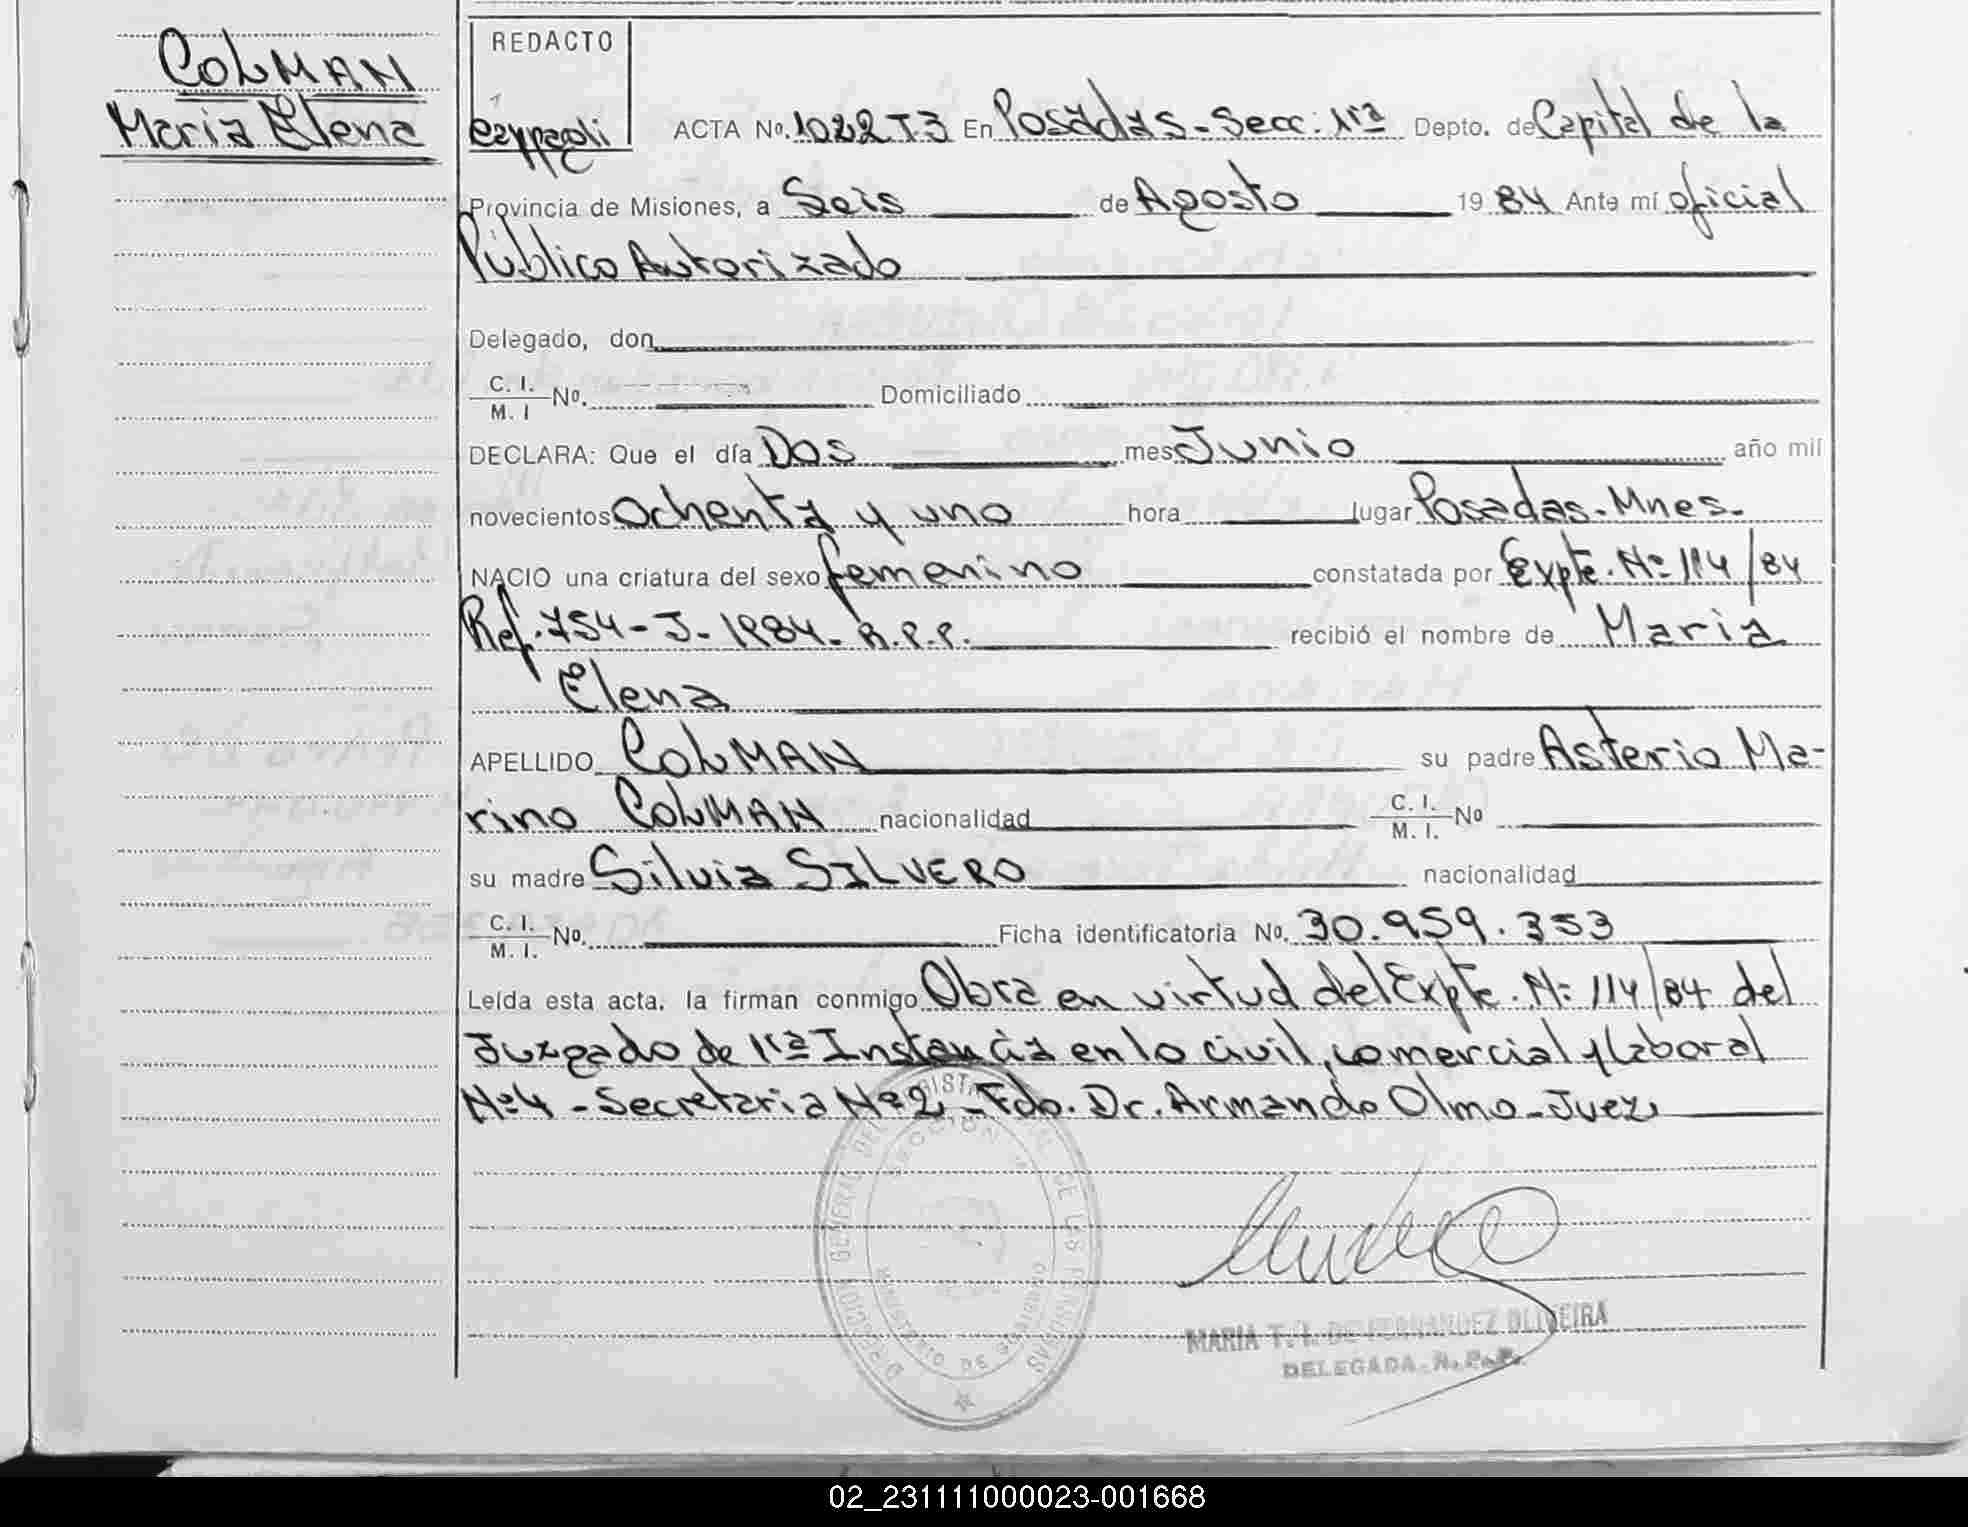 COLMAN
Maria Elena
REDACTO
ACTA Nº. 1022 T3 En Posadas - Secc: 1ra Depto. de Capital de la
Provincia de Misiones, a Seis de Agosto 19 84 Ante mí oficial
Público Autorizado
Delegado, don
C. I.
M. I No. Domiciliado
DECLARA: Que el día Dos mes Junio año mil
novecientos Ochenta y uno hora lugar Posadas - Mnes.
NACIO una criatura del sexo femenino constatada por Expte. Nº 114/84
Ref. 754 - J - 1984 - R.P.P. recibió el nombre de Maria
Elena
APELLIDO COLMAN su padre Asterio Ma-
rino COLMAN nacionalidad C. I.
M. I. No
su madre Silvia SILVERO nacionalidad
C. I.
M. I. No. Ficha identificatoria No. 30.959.353
Leída esta acta, la firman conmigo Obra en virtud del Expte. Nº 114/84 del
Juzgado de 1ra Instancia en lo civil, comercial y laboral
Nº 4 - Secretaria Nº 2 - Fdo. Dr. Armando Olmo - Juez
DIRECCION GENERAL DEL REGISTRO DE LAS PERSONAS
SECCION
MARIA T. I. DE FERNANDEZ OLIVEIRA
DELEGADA. R. P. P.
02_231111000023-001668